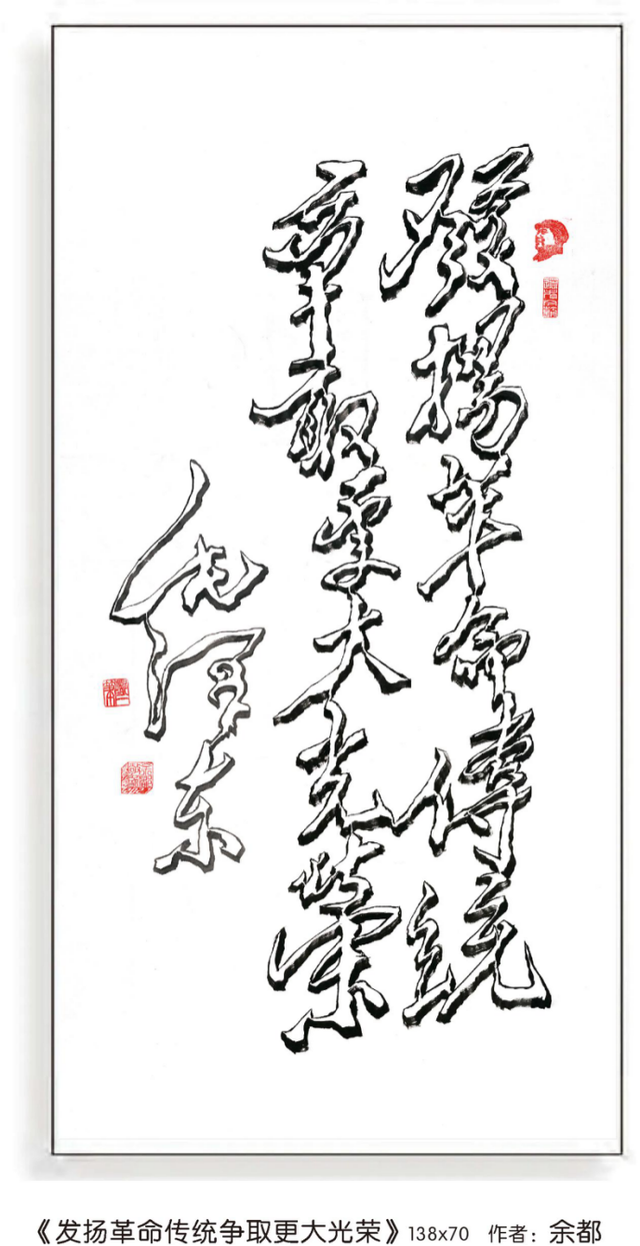 發揚革命傳統
爭取更大光榮
毛泽东
《发扬革命传统争取更大光荣》138x70 作者：余都